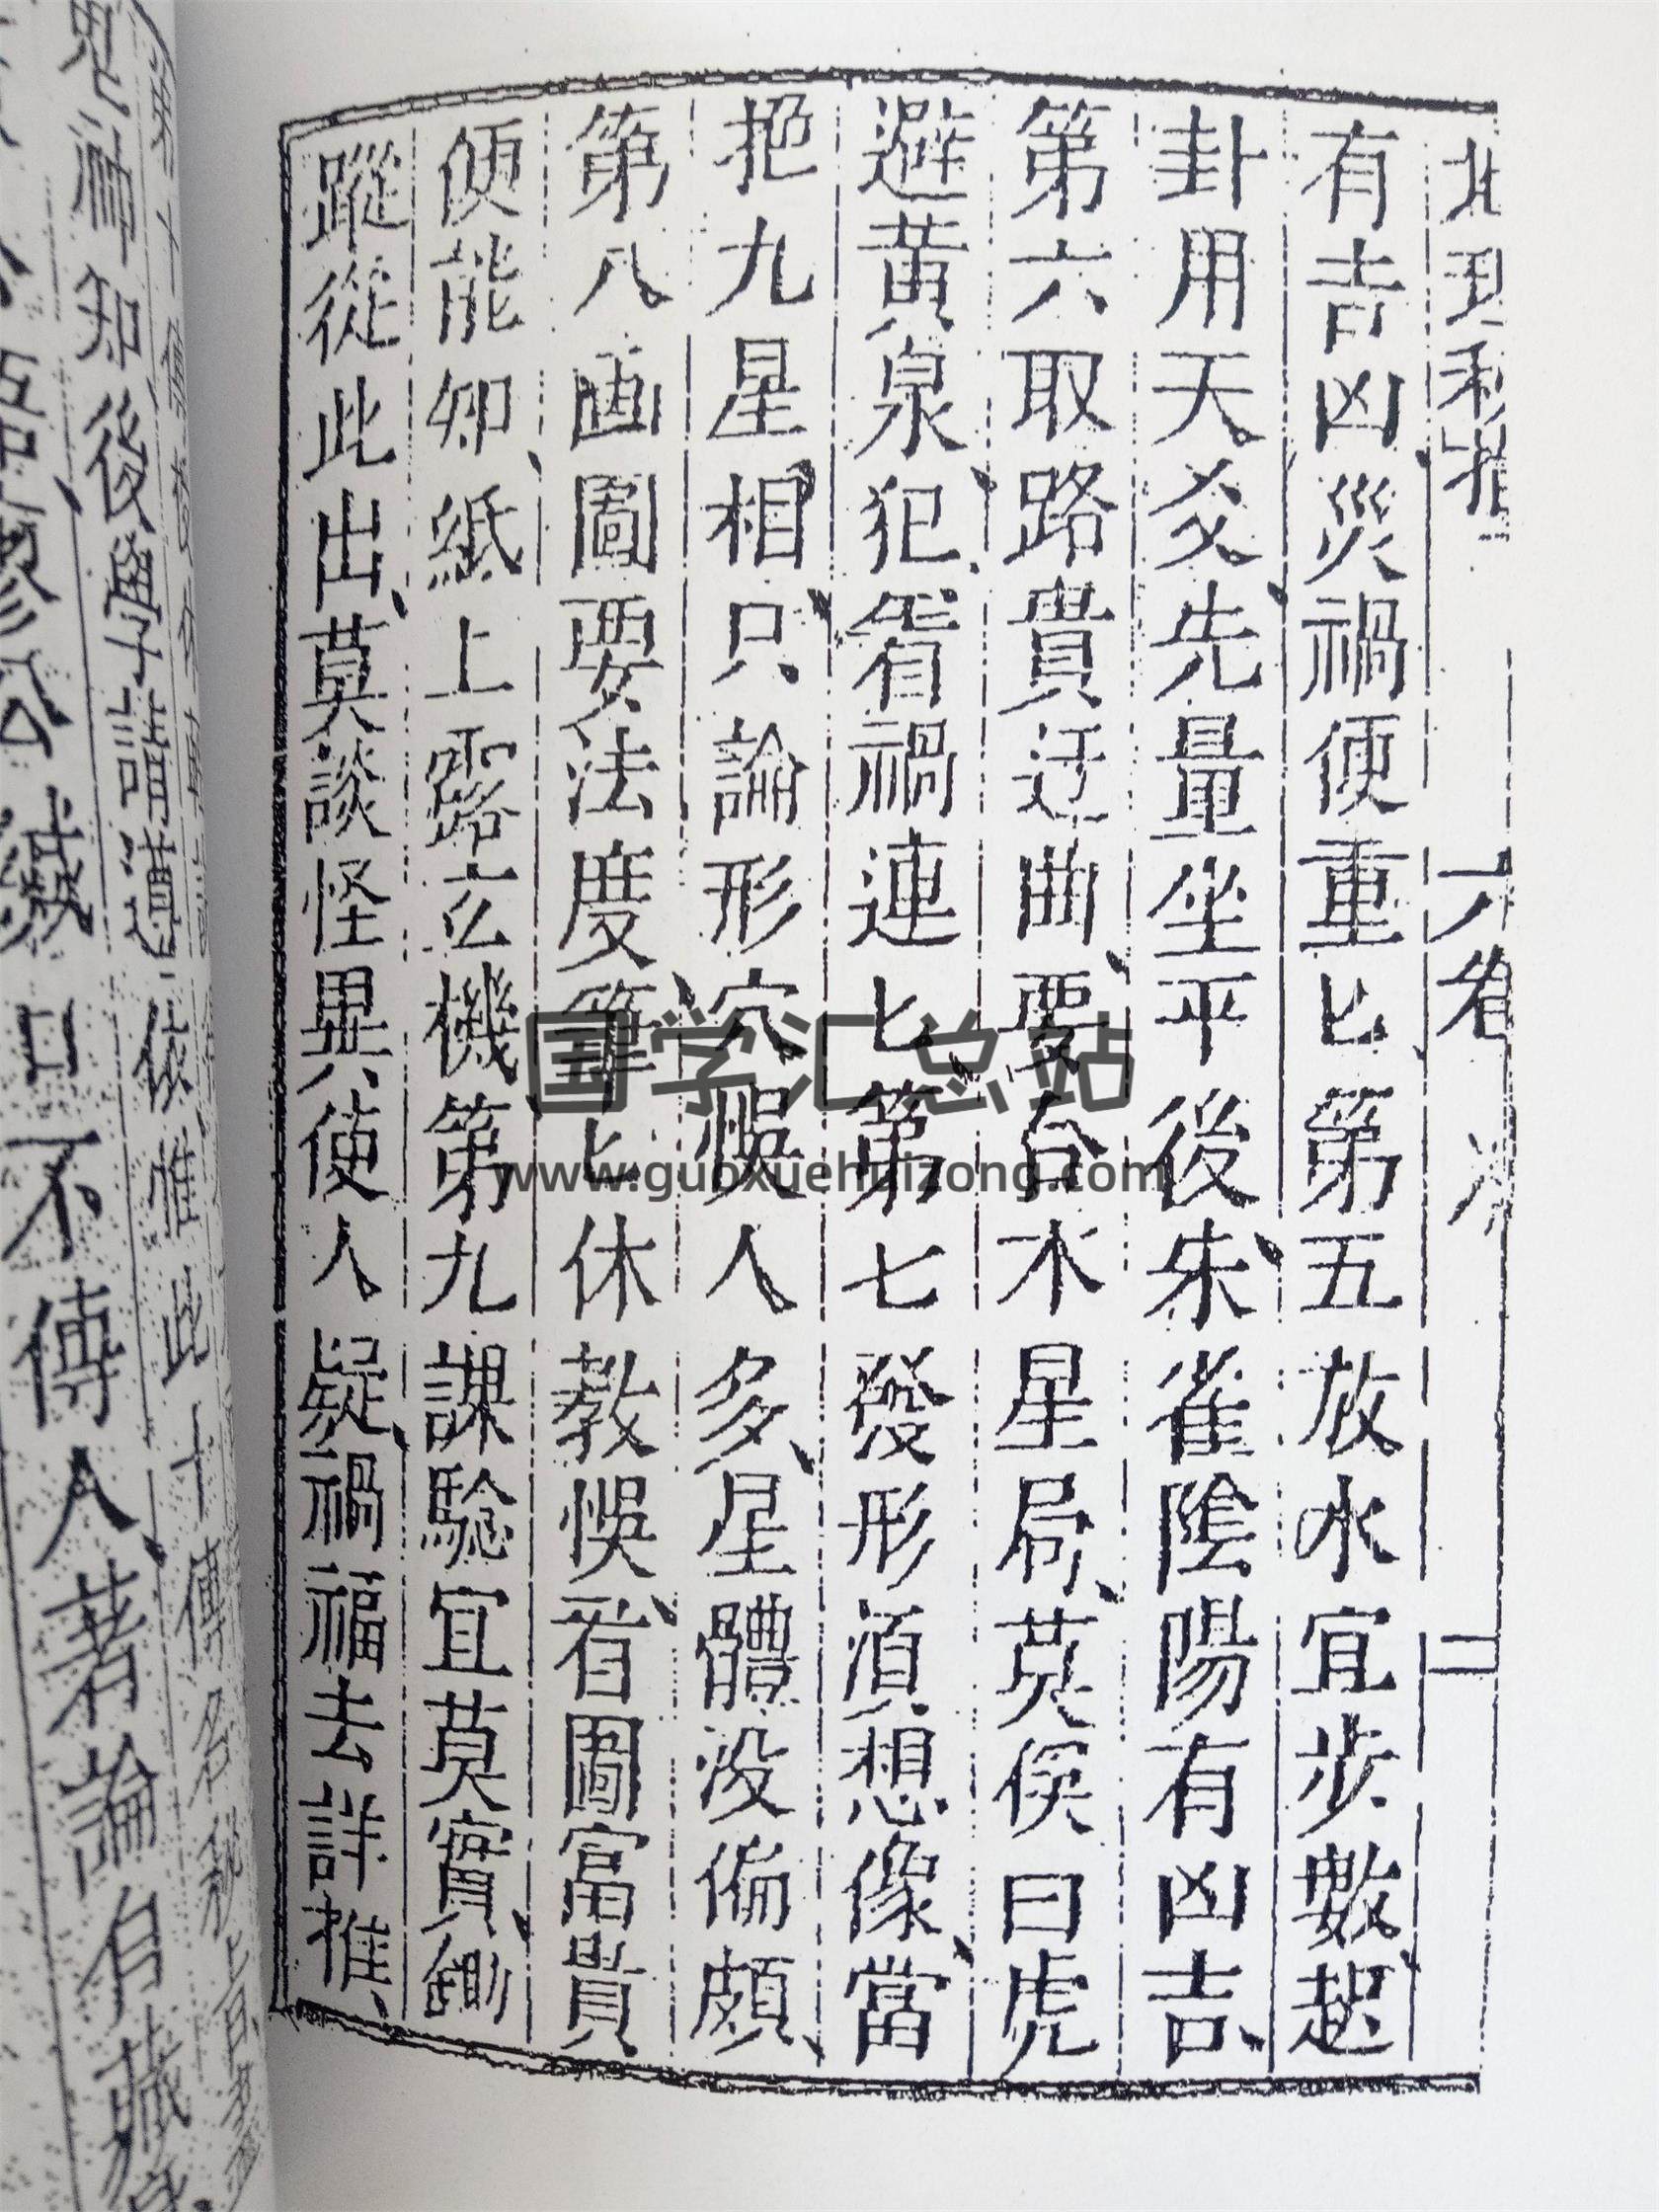 有吉凶災禍便重匕第五放水宜步數起
卦用天爻先量坐平後朱雀陰陽有凶吉
第六取路貴迂曲要合木星局莫俟曰虎
避黃泉犯着禍連匕第七發形須想像當
把九星相只論形穴悞人多星體没偏頗
第八画圖要法度筆匕休教悞看圖富貴
便能知紙上露玄機第九課驗宜莫實鋤
蹤從此出莫談怪異使人疑禍福去詳推
鬼神知後學子謹遵依惟此十傳名
口不傳人著論有藏
国学汇总站
www.guoxuehuizong.com